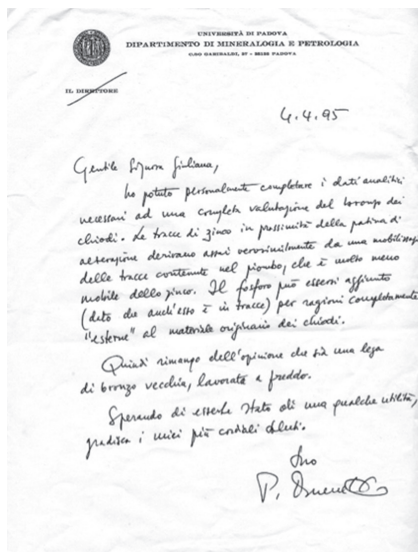 UNIVERSITÀ DI PADOVA
DIPARTIMENTO DI MINERALOGIA E PETROLOGIA
CORSO GARIBALDI, 37 - 35122 PADOVA
IL DIRETTORE
4.4.95
Gentile Signora Giuliana,
ho potuto personalmente completare i dati analitici
necessari ad una completa valutazione del bronzo dei
chiodi. Le tracce di zinco in prossimità della patina di
alterazione derivano assai verosimilmente da una
delle tracce contenute nel piombo, che è molto meno
mobile dello zinco. Il fosforo può esservi aggiunto
(dato che anch'esso è in tracce) per ragioni completamente
"esterne" al materiale originario dei chiodi.
Quindi rimango dell'opinione che sia una lega
di bronzo vecchia, lavorata a freddo.
Sperando di esserle stato di una qualche utilità,
gradisca i miei più cordiali saluti.
Suo
P.